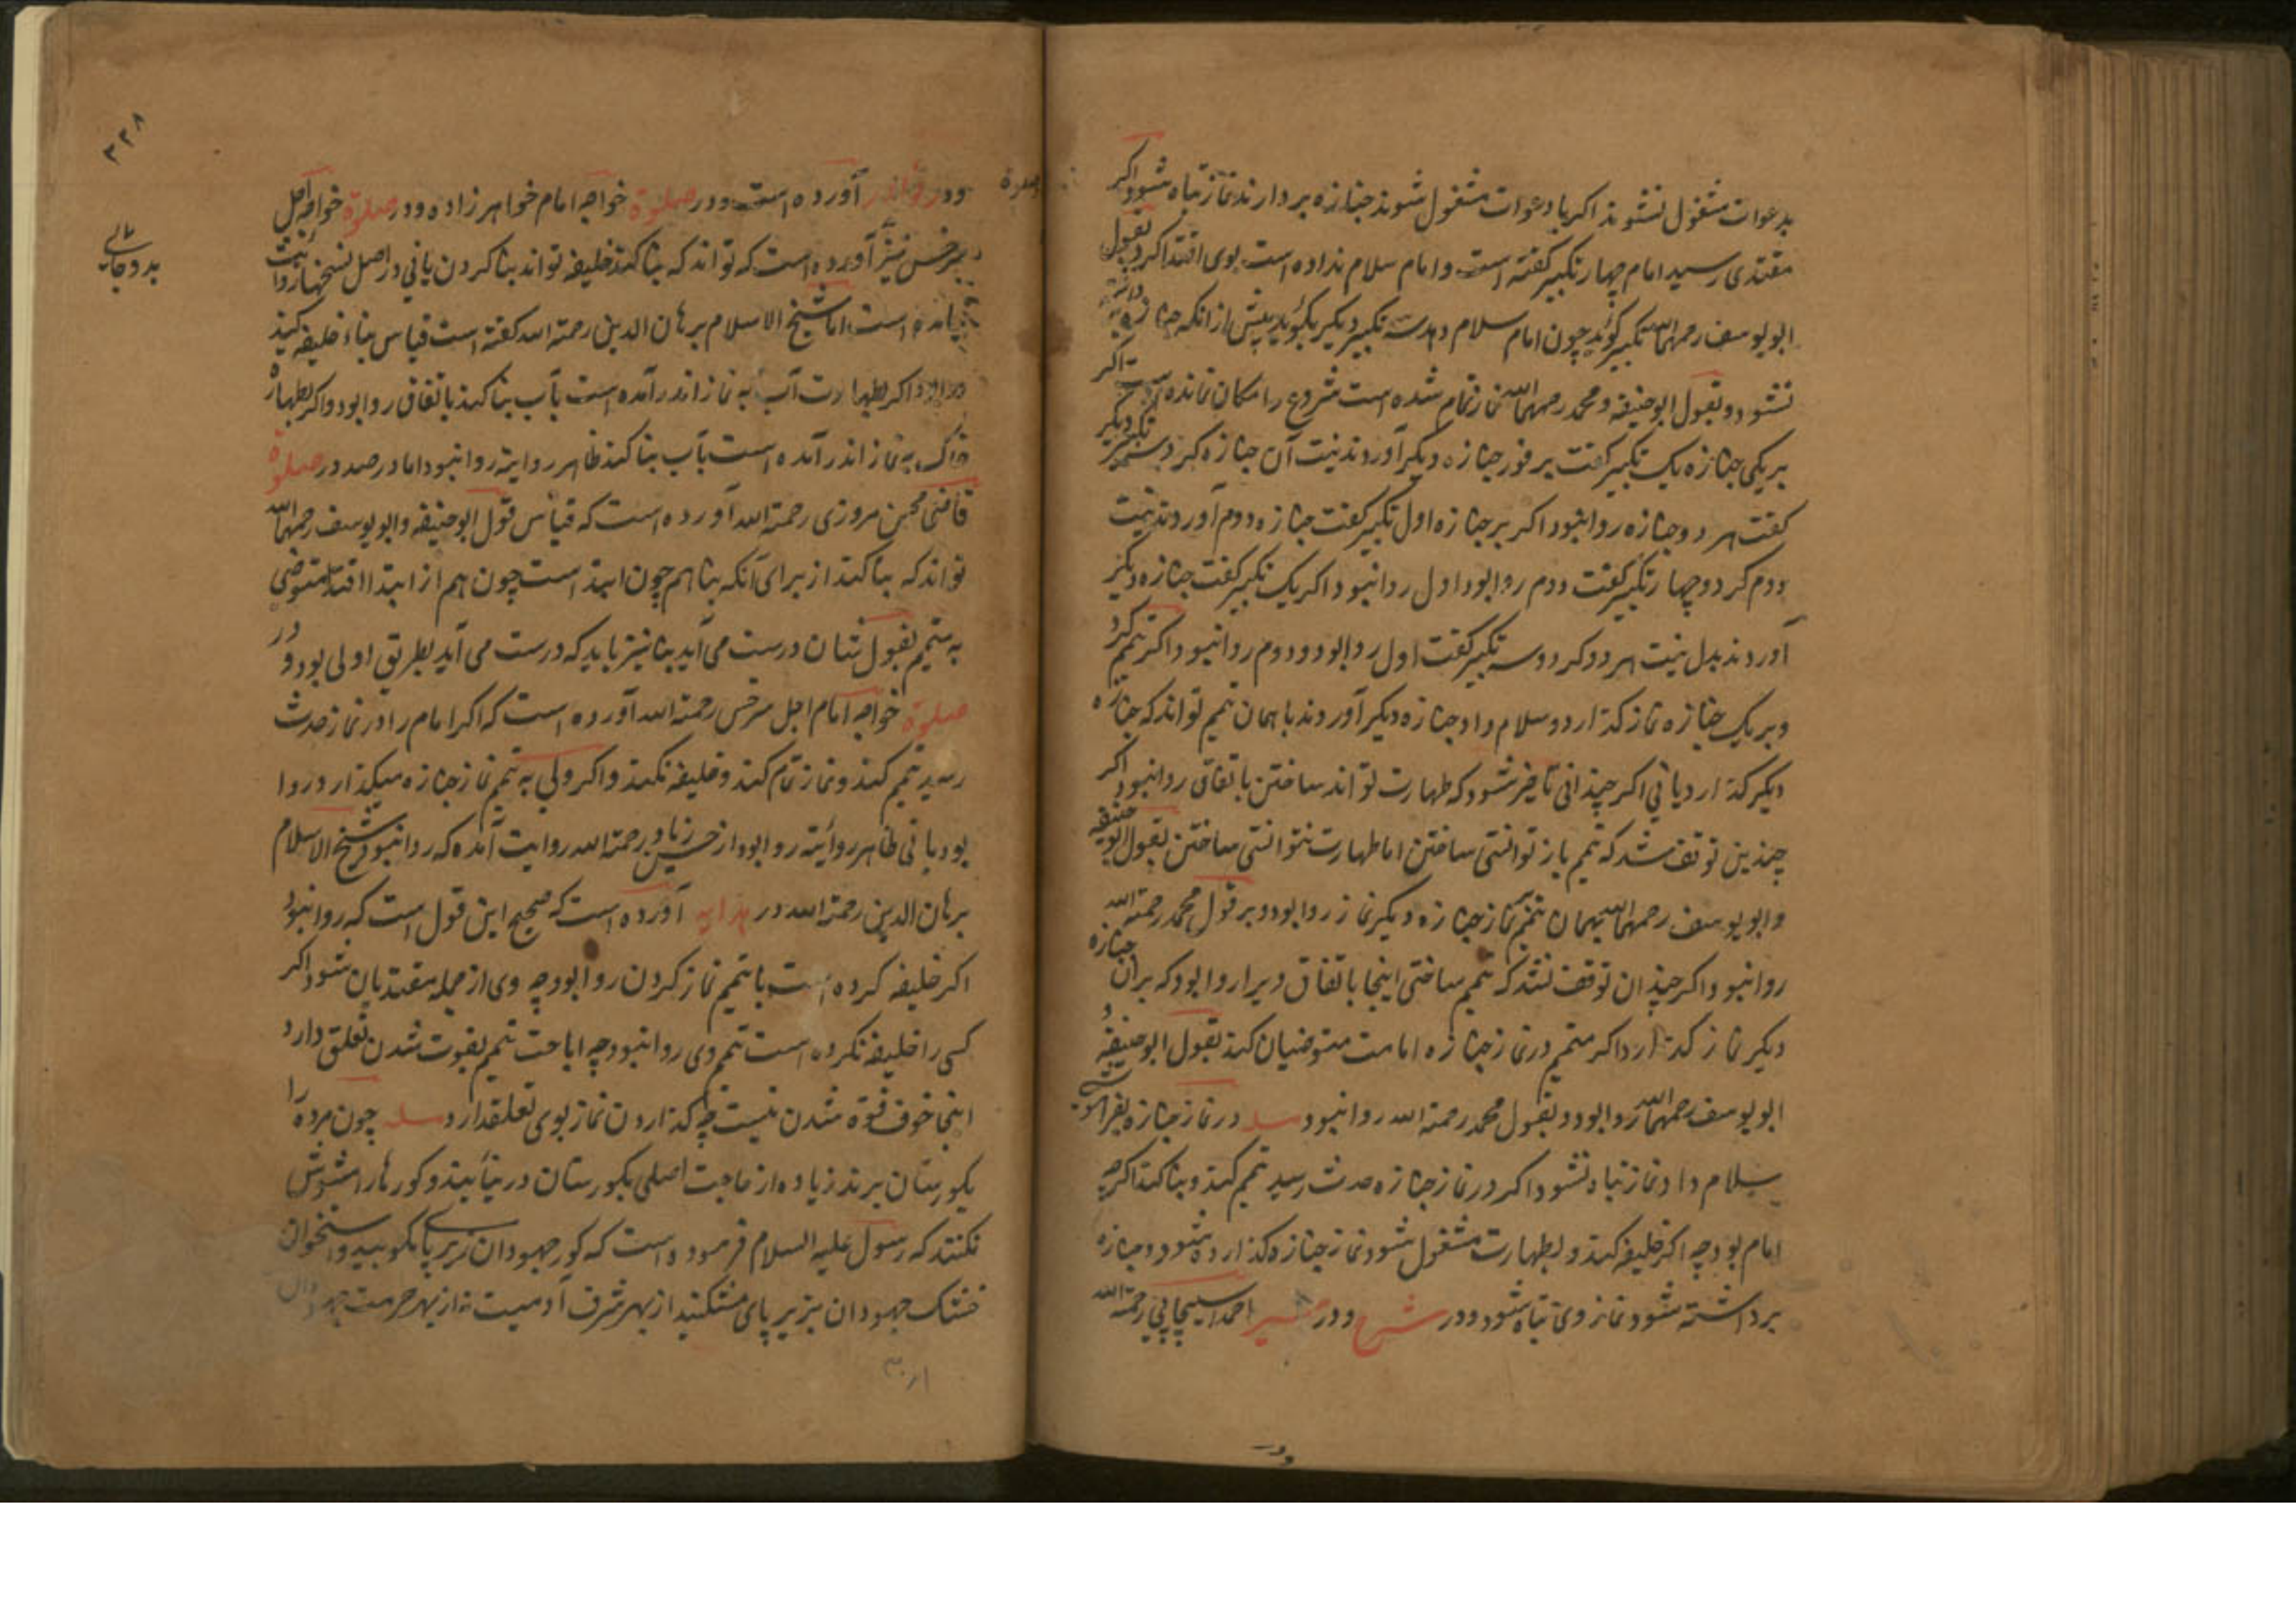 بدعوات مشغول نشوند اکر با دعوات مشغول شوند جنازه بردارند نماز تباه شود اکر
مقتدی رسید امام چهار تکبیر کفته است و امام سلام نداده است بوی اقتدا کرد بقول
ابو یوسف رحمهما الله تکبیر کوید چون امام سلام دهد سه تکبیر دیکر بکوید پیش از انکه جنازه برداشته
نشود و بقول ابو حنیفه و محمد رحمهما الله نماز تمام شده است شروع را امکان نمانده است اکر
بر یکی جنازه یک تکبیر کفت بر فور جنازه دیکر آوردند نیت آن جنازه کرد و سه تکبیر دیکر
کفت هر دو جنازه روا نبود اکر بر جنازه اول تکبیر کفت جنازه دوم آوردند نیت
دوم کرد و چهار تکبیر کفت دوم روا بود اول روا نبود اکر یک تکبیر کفت جنازه دیکر
آوردند بدل نیت هر دو کرد و سه تکبیر کفت اول روا بود و دوم روا نبود اکر تیمم کرد
و بر یک جنازه نماز کذارد و سلام داد جنازه دیکر آوردند با همان تیمم تواند که جنازه
دیکر کذارد یا نی اکر چندانی تاخیر شود که طهارت تواند ساختن باتفاق روا نبود اکر
چندین توقف شد که تیمم باز توانستی ساختن اما طهارت نتوانستی ساختن بقول ابو حنیفه
و ابو یوسف رحمهما الله بهمان تیمم نماز جنازه دیکر نماز روا بود و بر قول محمد رحمه الله
روا نبود اکر چندان توقف نشد که تیمم ساختی اینجا باتفاق ویرا روا بود که بران جنازه
دیکر نماز کذارد اکر متیمم در نماز جنازه امامت متوضیان کند بقول ابو حنیفه و
ابو یوسف رحمهما الله روا بود و بقول محمد رحمة الله روا نبود مسله در نماز جنازه بفراموشی
سلام داد نماز تباه نشود اکر در نماز جنازه حدث رسید تیمم کند و بنا کند اکرچه
امام بود چه اکر خلیفه کند و بطهارت مشغول شود نماز جنازه کذارده شود و جنازه
برداشته شود نماز وی تباه شود و در شرح و در احمد اسبیجابی رحمة الله
و در
۳۳۸
و در آورده است و در صلوة خواجه امام خواهر زاده و در صلوة خواجه اجل
سرخسی نیز آورده است که تواند که بنا کند خلیفه تواند بنا کردن یا نی در اصل نسخها روایت
نیامده است اما شیخ الاسلام برهان الدین رحمة الله کفته است قیاس بناء خلیفه کند
اکر بطهارت آب به نماز اندر آمده است بآب بنا کند باتفاق روا بود و اکر بطهارة
خاک به نماز اندر آمده است بآب بنا کند ظاهر روایة روا نبود اما در صدر صلوة
قاضی محسن مروزی رحمة الله آورده است که قیاس قول ابو حنیفه و ابو یوسف رحمهما الله
تواند که بنا کند از برای آنکه بنا هم چون ابتدا است چون هم از ابتدا اقتدا متوضی
به متیمم بقول شان درست می آید بنا نیز باید که درست می آید بطریق اولی بود و در
صلوة خواجه امام اجل سرخسی رحمة الله آورده است که اکر امام را در نماز حدث
رسید تیمم کند و نماز تمام کند و خلیفه نکند و اکر ولی به تیمم نماز جنازه میکذارد روا
بود یا نی ظاهر روایة روا بود از حسن زیاد رحمة الله روایت آمده که روا نبود شیخ الاسلام
برهان الدین رحمة الله در هدایه آورده است که صحیح این قول است که روا نبود
اکر خلیفه کرده است با تیمم نماز کردن روا بود چه وی از جمله مقتدیان شود اکر
کسی را خلیفه نکرده است تیمم وی روا نبود چه اباحت تیمم بفوت شدن تعلق دارد
اینجا خوف فوة شدن نیست چه کذاردن نماز بوی تعلقدارد مسله چون مرده را
بکورستان برند زیاده از حاجت اصلی بکورستان در نیایند و کورها را مشوش
نکنند که رسول علیه السلام فرموده است که کور جهودان زیر پای مکوبید و استخوان
خشک جهودان بزیر پای مشکنید از بهر شرف آدمیت نه از بهر حرمت جهودان